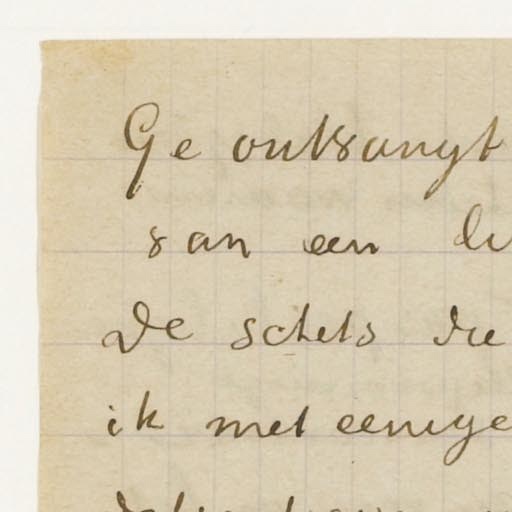 Ge ontvangt
van een
De schets die
ik met eenige